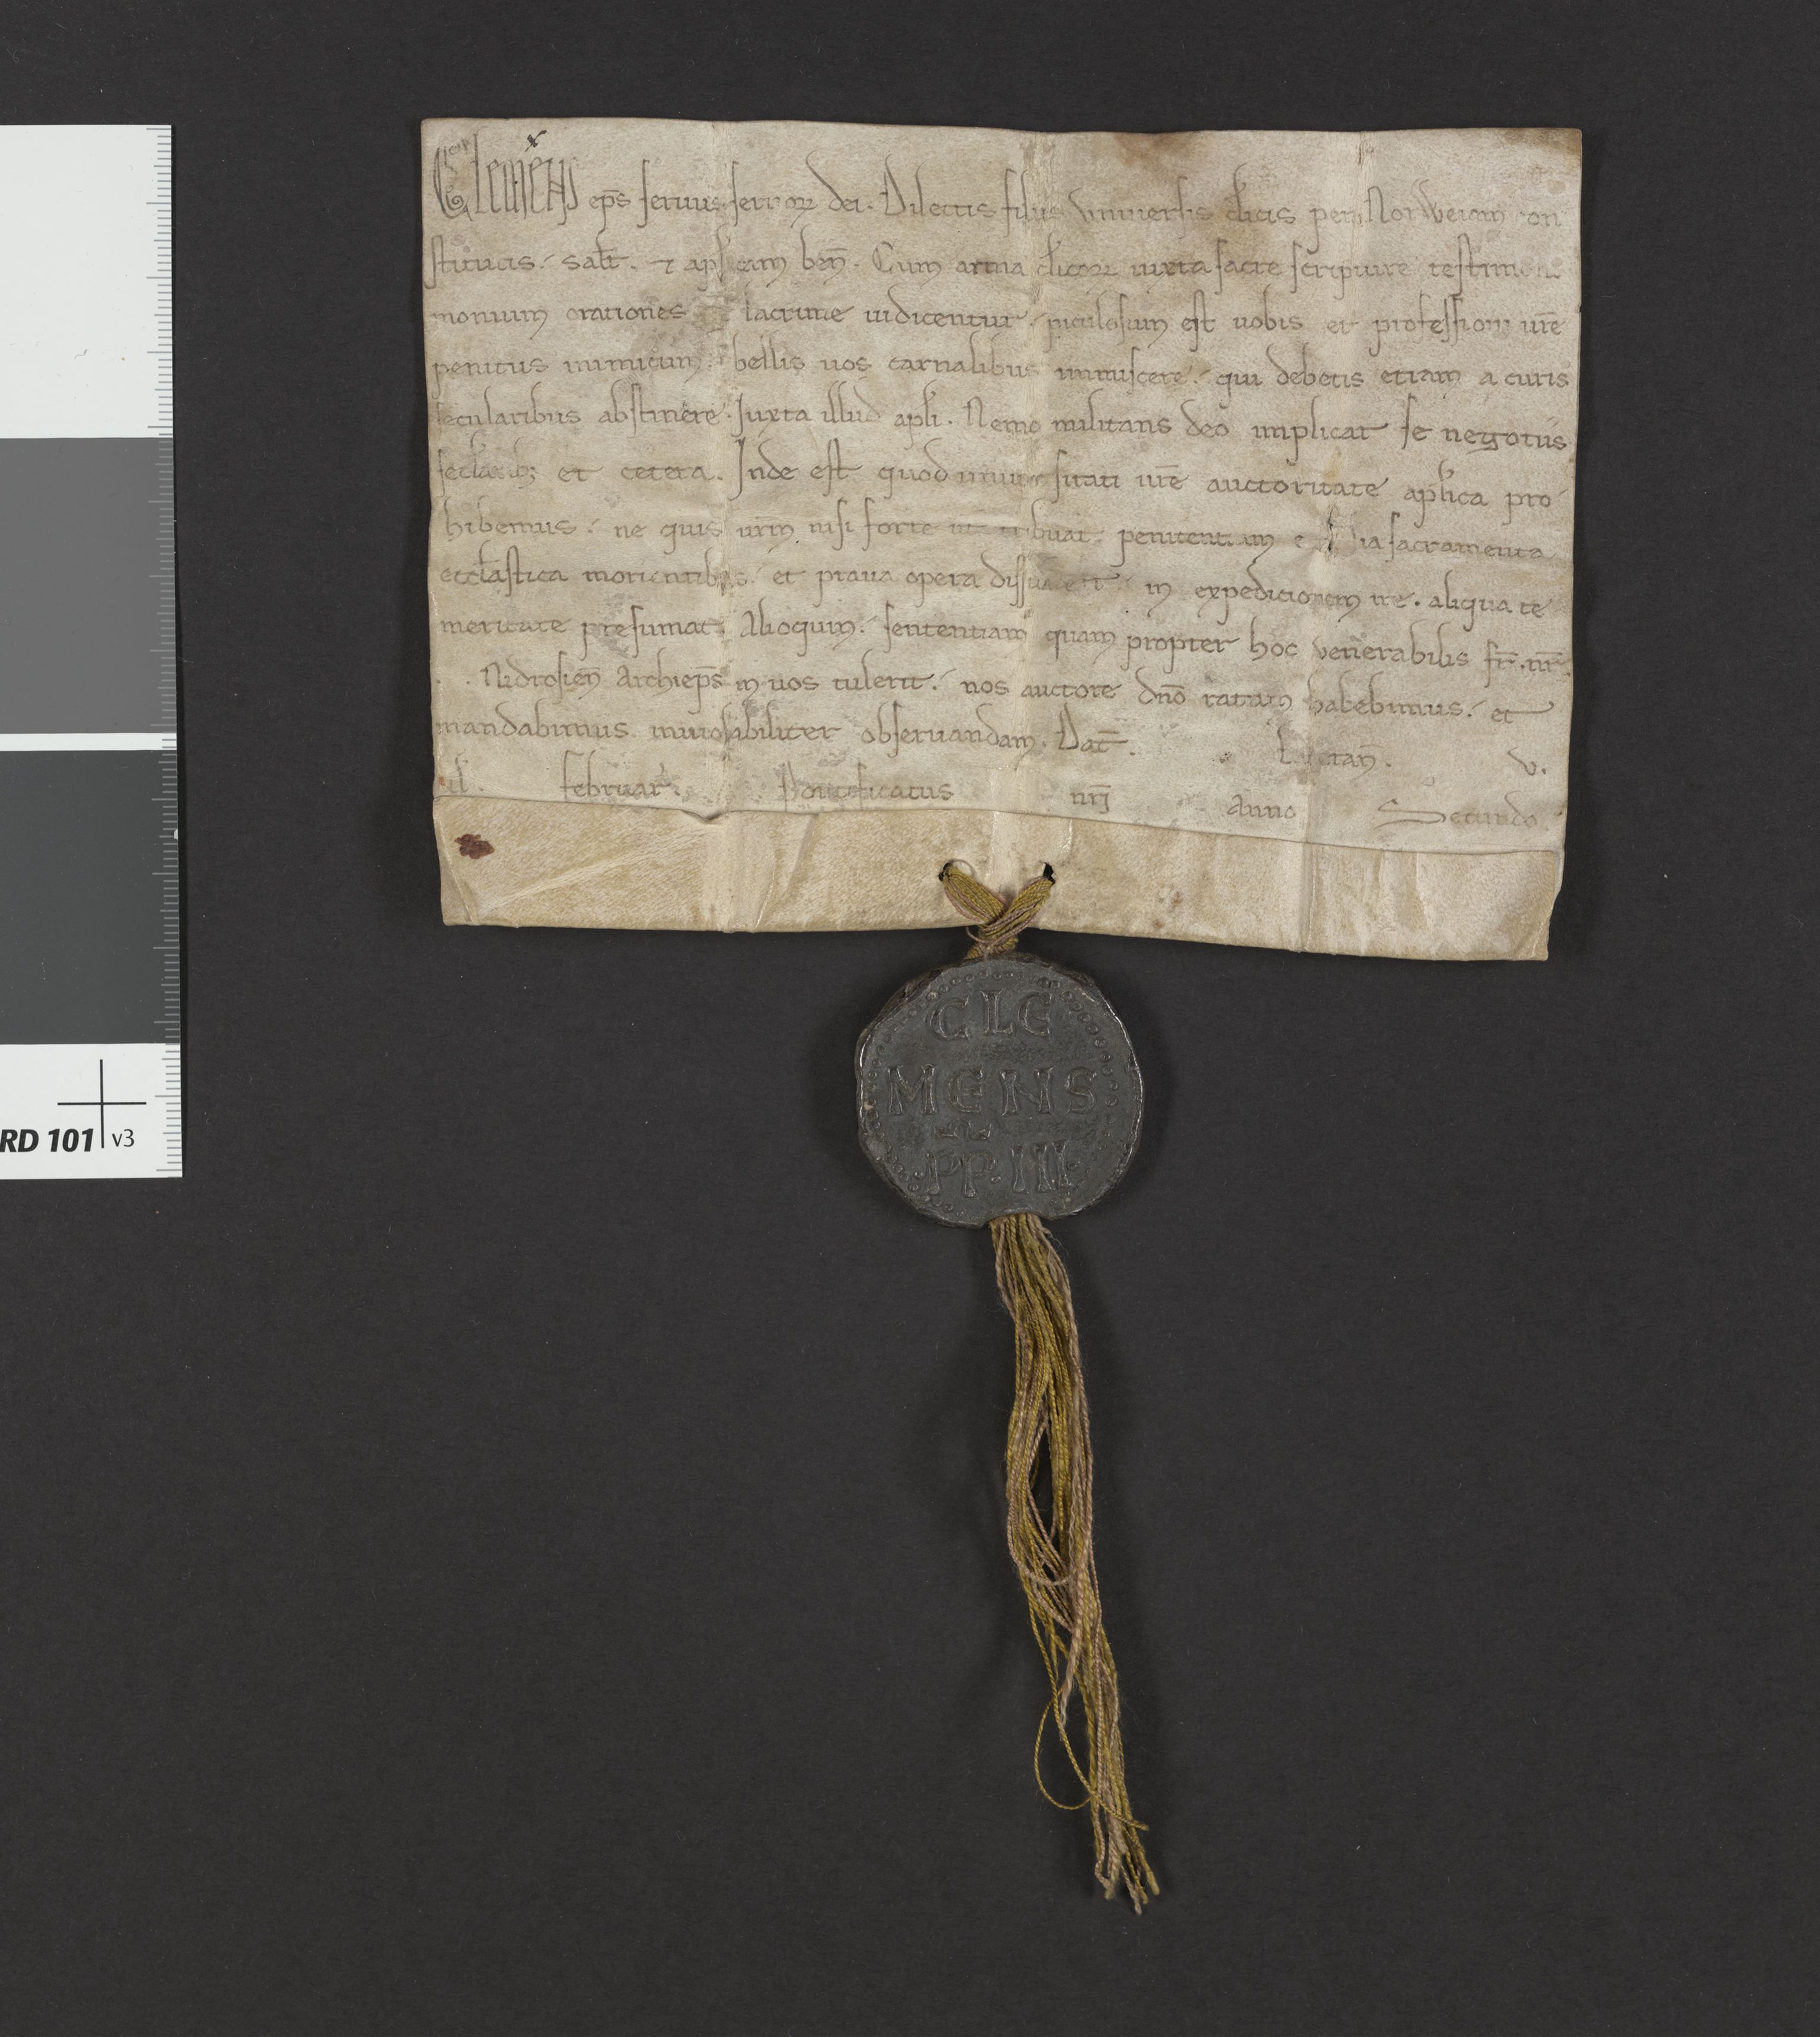 Clemens ep̄s seruus seruoꝝ dei. Dilectis filiis vniuersis cl̄icis per Norweiam con
stitutis. salt̄. ⁊ apl̄icam ben̄. Cum arma cl̄icoꝝ iuxta sacre scripture testimoni
monium orationes lacrime iudicentur. ꝑiculosum est uobis et professioni ur̄e
penitus inimicum. bellis uos carnalibus immiscere. qui debetis etiam a curis
secularibus abstinere. Iuxta illud apl̄i. Nemo militans deo implicat se negotiis
secl̄arib; et cetera. Inde est quod uniuersitati ur̄e auctoritate apl̄ica pro
hibemus. ne quis ur̄m nisi forte ut tribuat penitentiam et alia sacramenta
eccl̄astica morientibus. et praua opera dissuadeat. in expeditionem ire. aliqua te
meritate presumat. Alioquin. sententiam quam propter hoc venerabilis fr̄. nr̄.
. . Nidrosien̄ Archiep̄s in uos tulerit. nos auctore dn̄o ratam habebimus. et
mandabimus inuiolabiliter obseruandam. Dat̄. Lateran̄. v.
kl̄. februar̄. Pontificatus nrī Anno Secundo.
CLE
MENS
PP. III
RD 101 v3